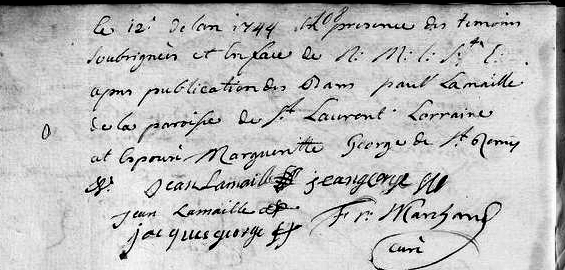 le 12 de lan 1744 presence des temoins
soubsignés et en face de N. M. S. E.
apres publication des bans paul Lamaille
de la paroisse de St Laurent Lorraine
at espousé Margueritte George de St Remy
Jean Lamaille jean george
jean Lamaille
jacques george Fr. Marchand
curé